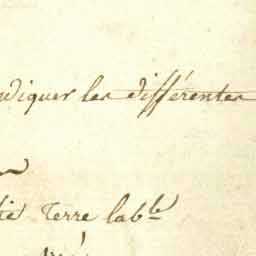 ndiquer les différentes
tie Terre lab.le